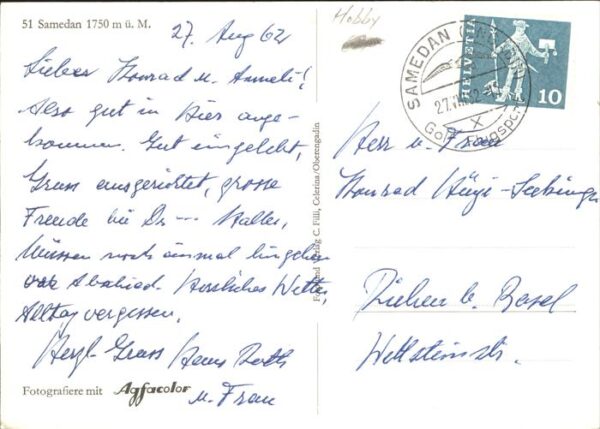 51 Samedan 1750 m ü. M.
27. Aug 62
Lieber Konrad u. Anneli!
Also gut in hier ange-
kommen. Gut eingelebt,
Gruss ausgerichtet, grosse
Freude bei Dr --- Haller,
Müssen noch einmal hingehen
vor Abschied. Herrliches Wetter,
Alltag vergessen.
Herzl. Gruss Hans Roth
u. Frau
Fotografiere mit Agfacolor
Verlag C. Filli, Celerina/Oberengadin
Hobby
HELVETIA
10
SAMEDAN
27.VIII.62
Herr u. Frau
Konrad Hügi-
Riehen b. Basel
Wettsteinstr.